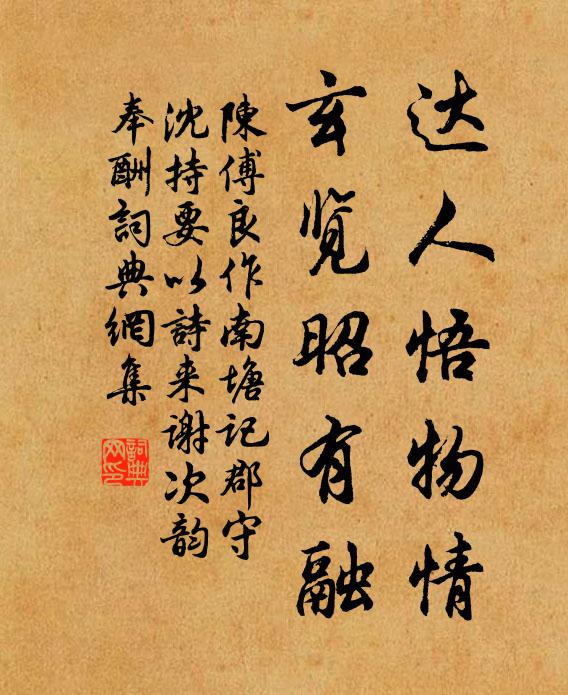 达人悟物情
玄览昭有融
陳傅良作南塘记郡守
沈持要以詩来谢次韵
奉酬詞典網集
詞典网印